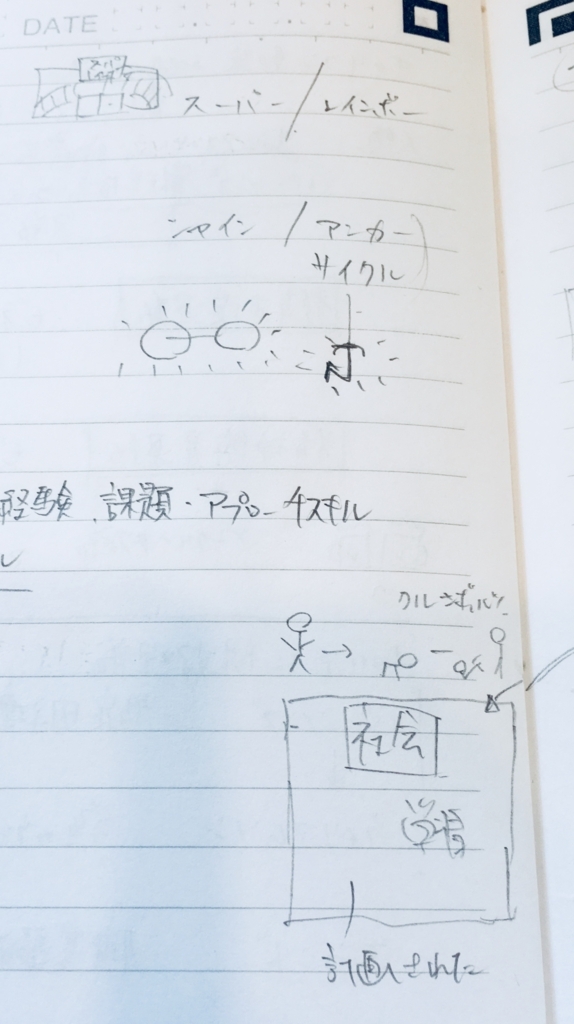 DATE
スーパー / レインボー
シャイン / アンカー
サイクル
経験、課題・アプローチスキル
ル
社会
学習
計画された